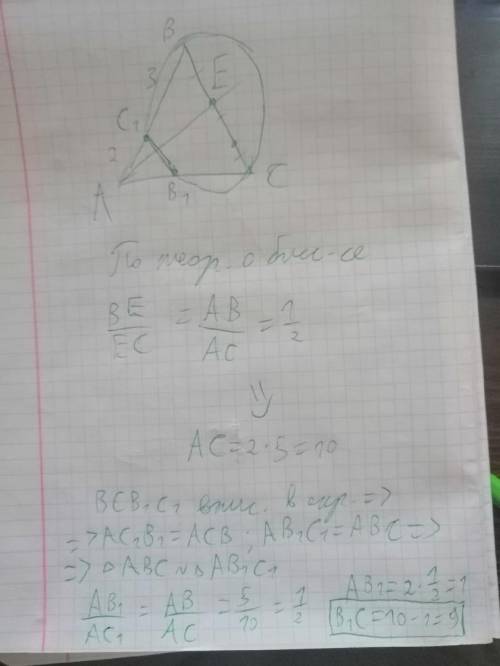 B
3
E
C₁
2
A
B₁
C
По теор. о бисс-се
BE/EC = AB/AC = 1/2
⇓
AC=2·5=10
BCB₁C₁ впис. в окр. =>
=> AC₁B₁=ACB ; AB₁C₁=ABC =>
=> △ABC ∼ △AB₁C₁
AB₁/AC₁ = AB/AC = 5/10 = 1/2
AB₁=2·1/2=1
B₁C=10-1=9